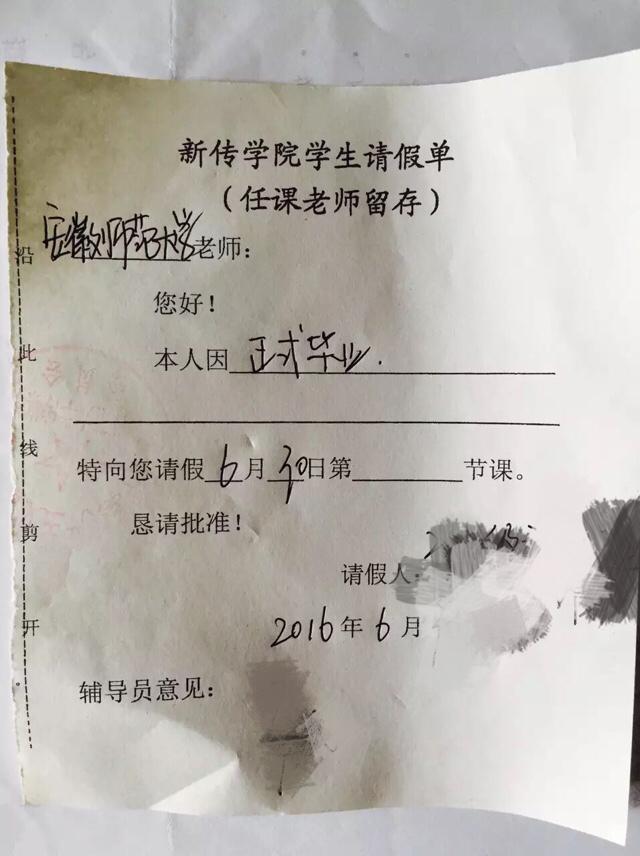 新传学院学生请假单
（任课老师留存）
安徽师范大学老师：
您好！
本人因 正式毕业.
特向您请假 6 月 30 日第 节课。
恳请批准！
请假人：
2016 年 6 月
辅导员意见：
沿此线剪开